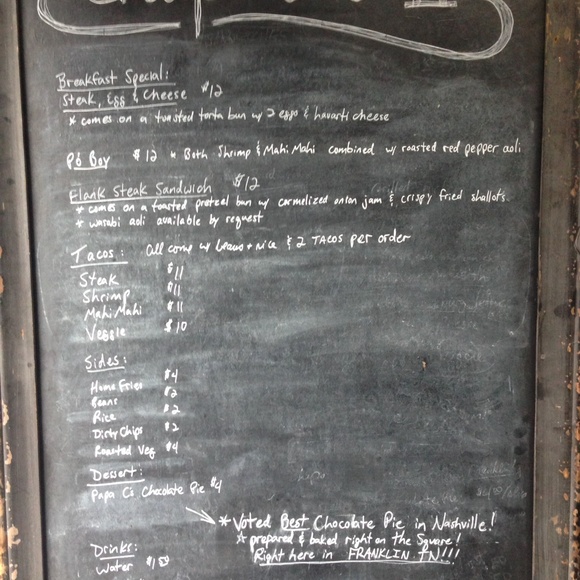 Breakfast Special:
Steak, Egg & Cheese $12
* comes on a toasted torta bun w/ 2 eggs & havarti cheese
Po Boy $12 * Both Shrimp & Mahi Mahi combined w/ roasted red pepper aoli
Flank Steak Sandwich $12
* comes on a toasted pretzel bun w/ carmelized onion jam & crispy fried shallots
* wasabi aoli available by request
Tacos: All come w/ beans + rice & 2 TACOS per order
Steak $11
Shrimp $11
Mahi Mahi $11
Veggie $10
Sides:
Home Fries $4
Beans $2
Rice $2
Dirty Chips $2
Roasted Veg $4
Dessert:
Papa C's Chocolate Pie $4
* Voted Best Chocolate Pie in Nashville!
* prepared & baked right on the Square!
Right here in FRANKLIN TN!!!
Drinks:
Water $1.50